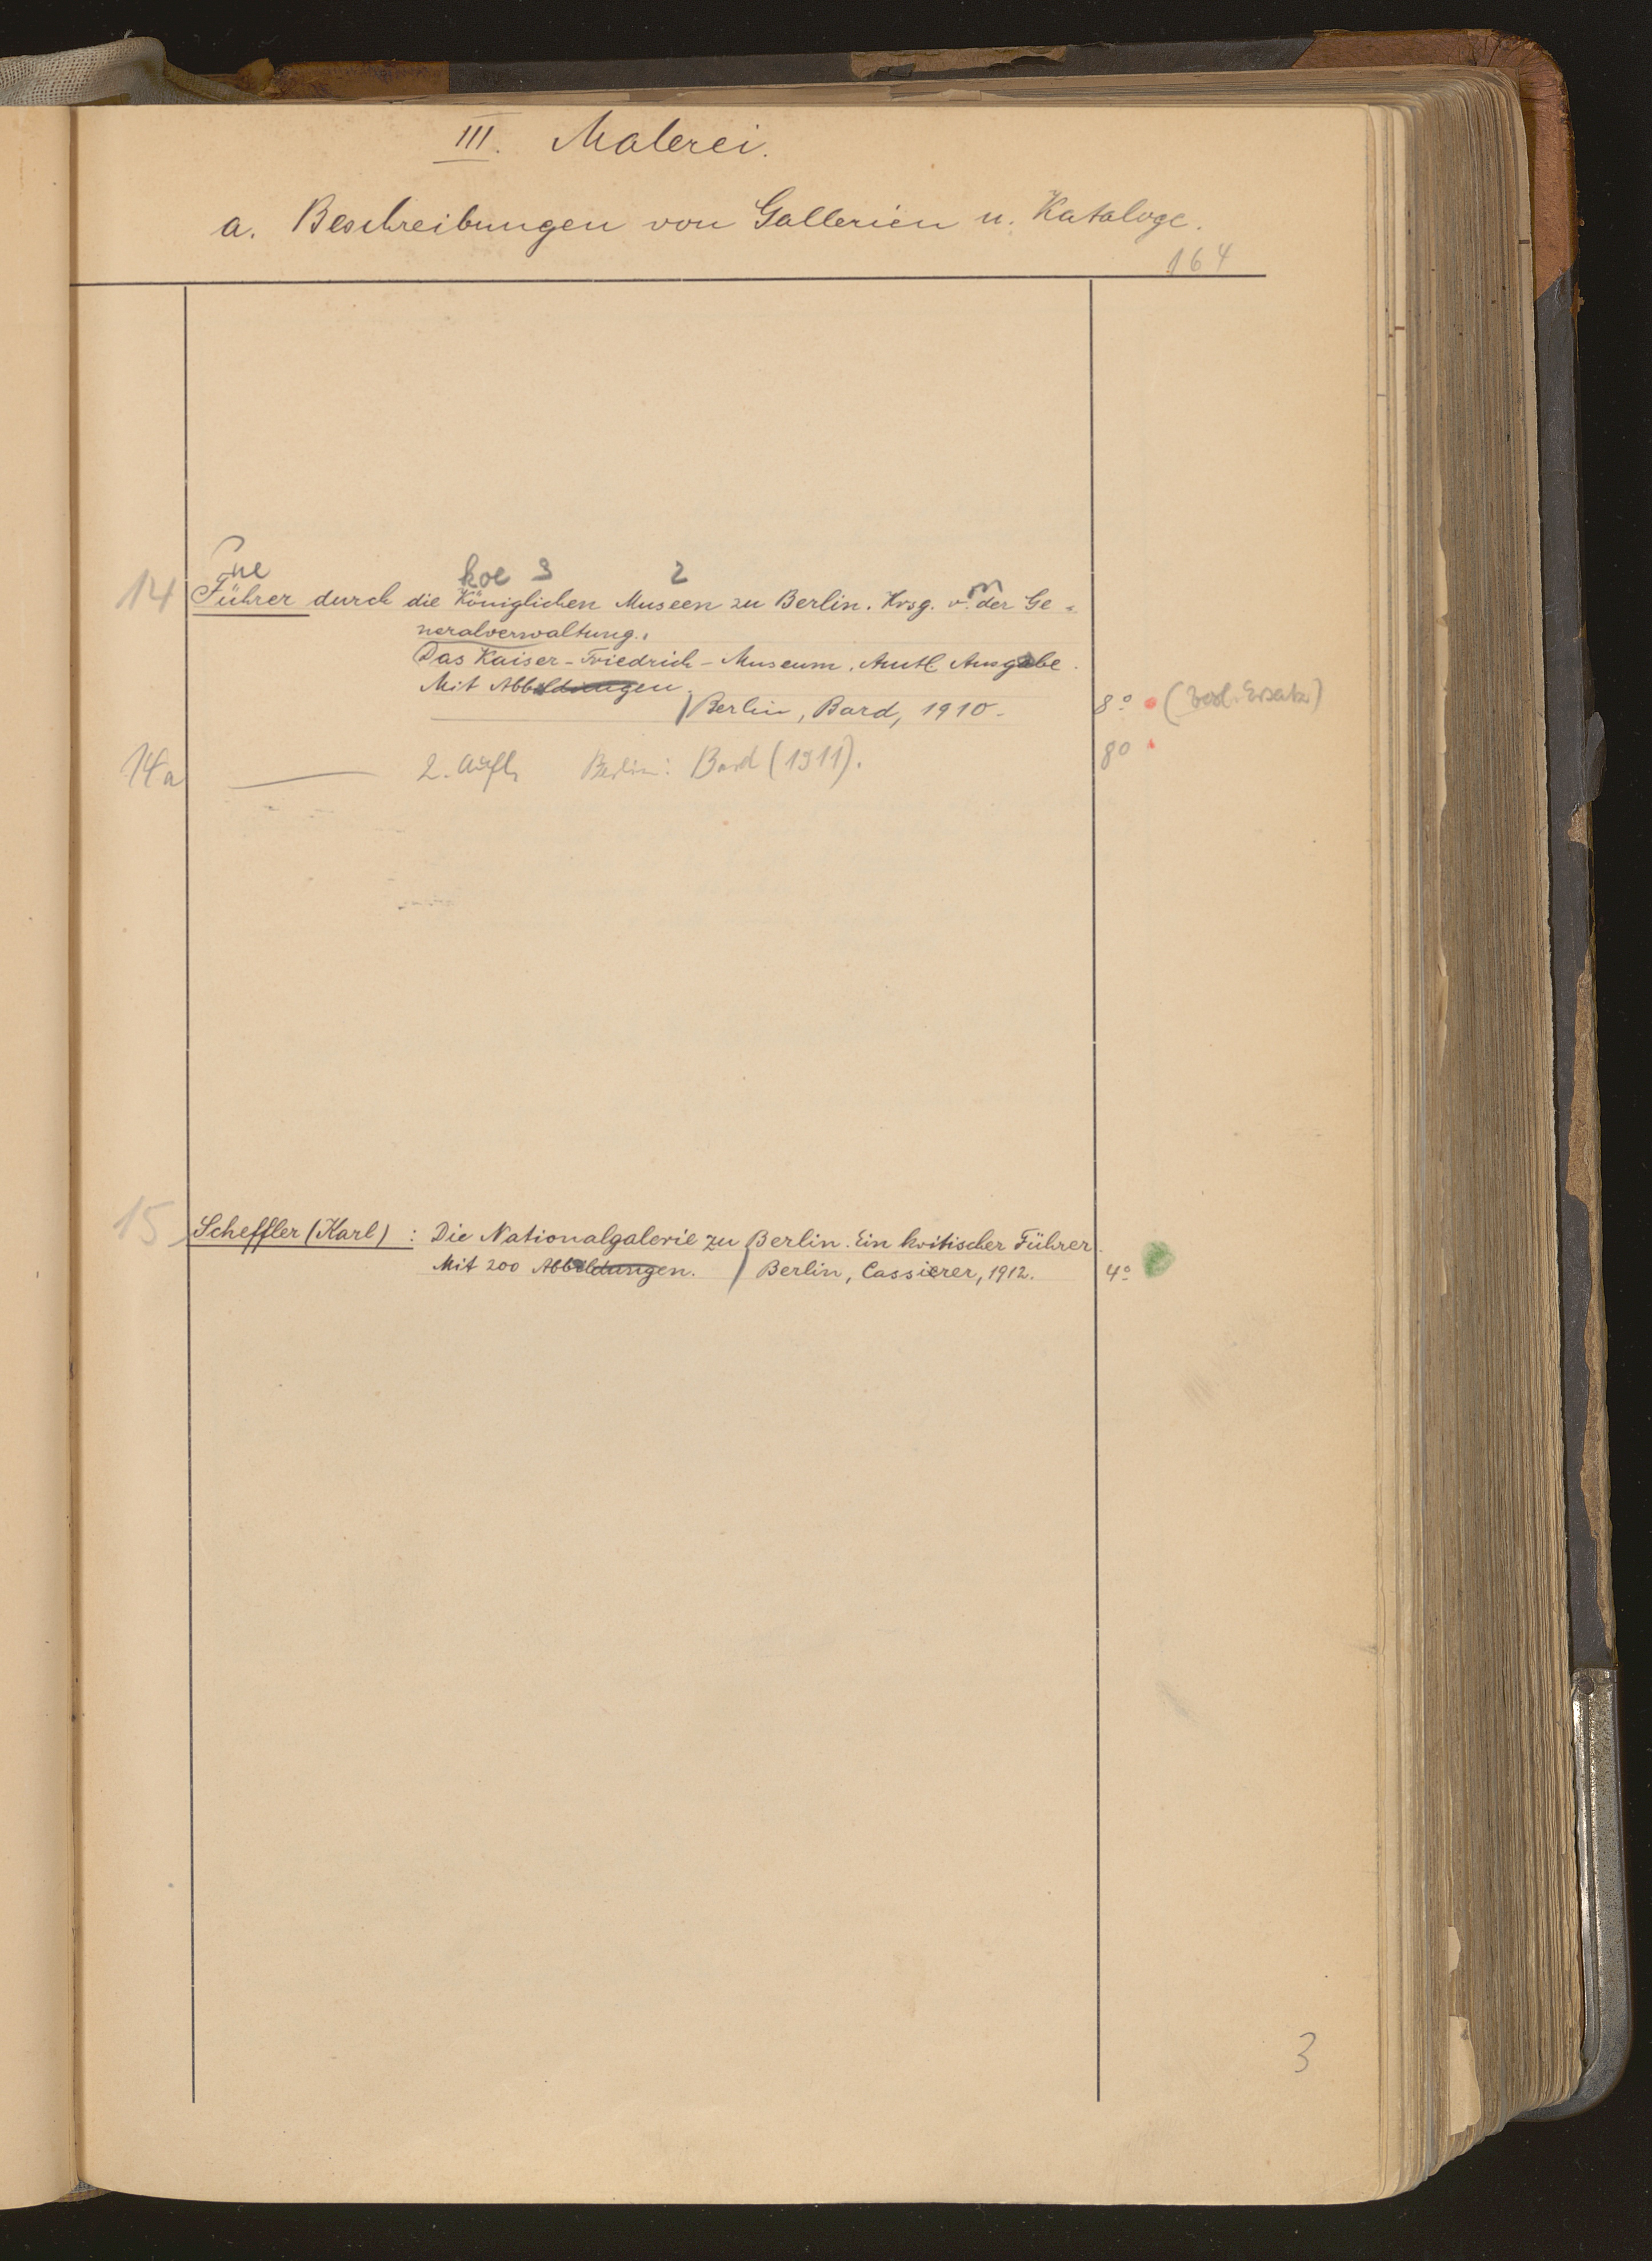 III. Malerei.
a. Beschreibungen von Gallerien u. Kataloge.
164
ue koe 3 2
14 Führer durch die Königlichen Museen zu Berlin. Hrsg. v. der Ge-
neralverwaltung.
Das Kaiser-Friedrich-Museum. Amtl. Ausgabe.
Mit Abbildungen.
Berlin, Bard, 1910. 8° (Verl. Ersatz)
14a — 2. Aufl. Berlin: Bard (1911). 8°
15 Scheffler (Karl): Die Nationalgalerie zu Berlin. Ein kritischer Führer.
Mit 200 Abbildungen. Berlin, Cassierer, 1912. 4°
3